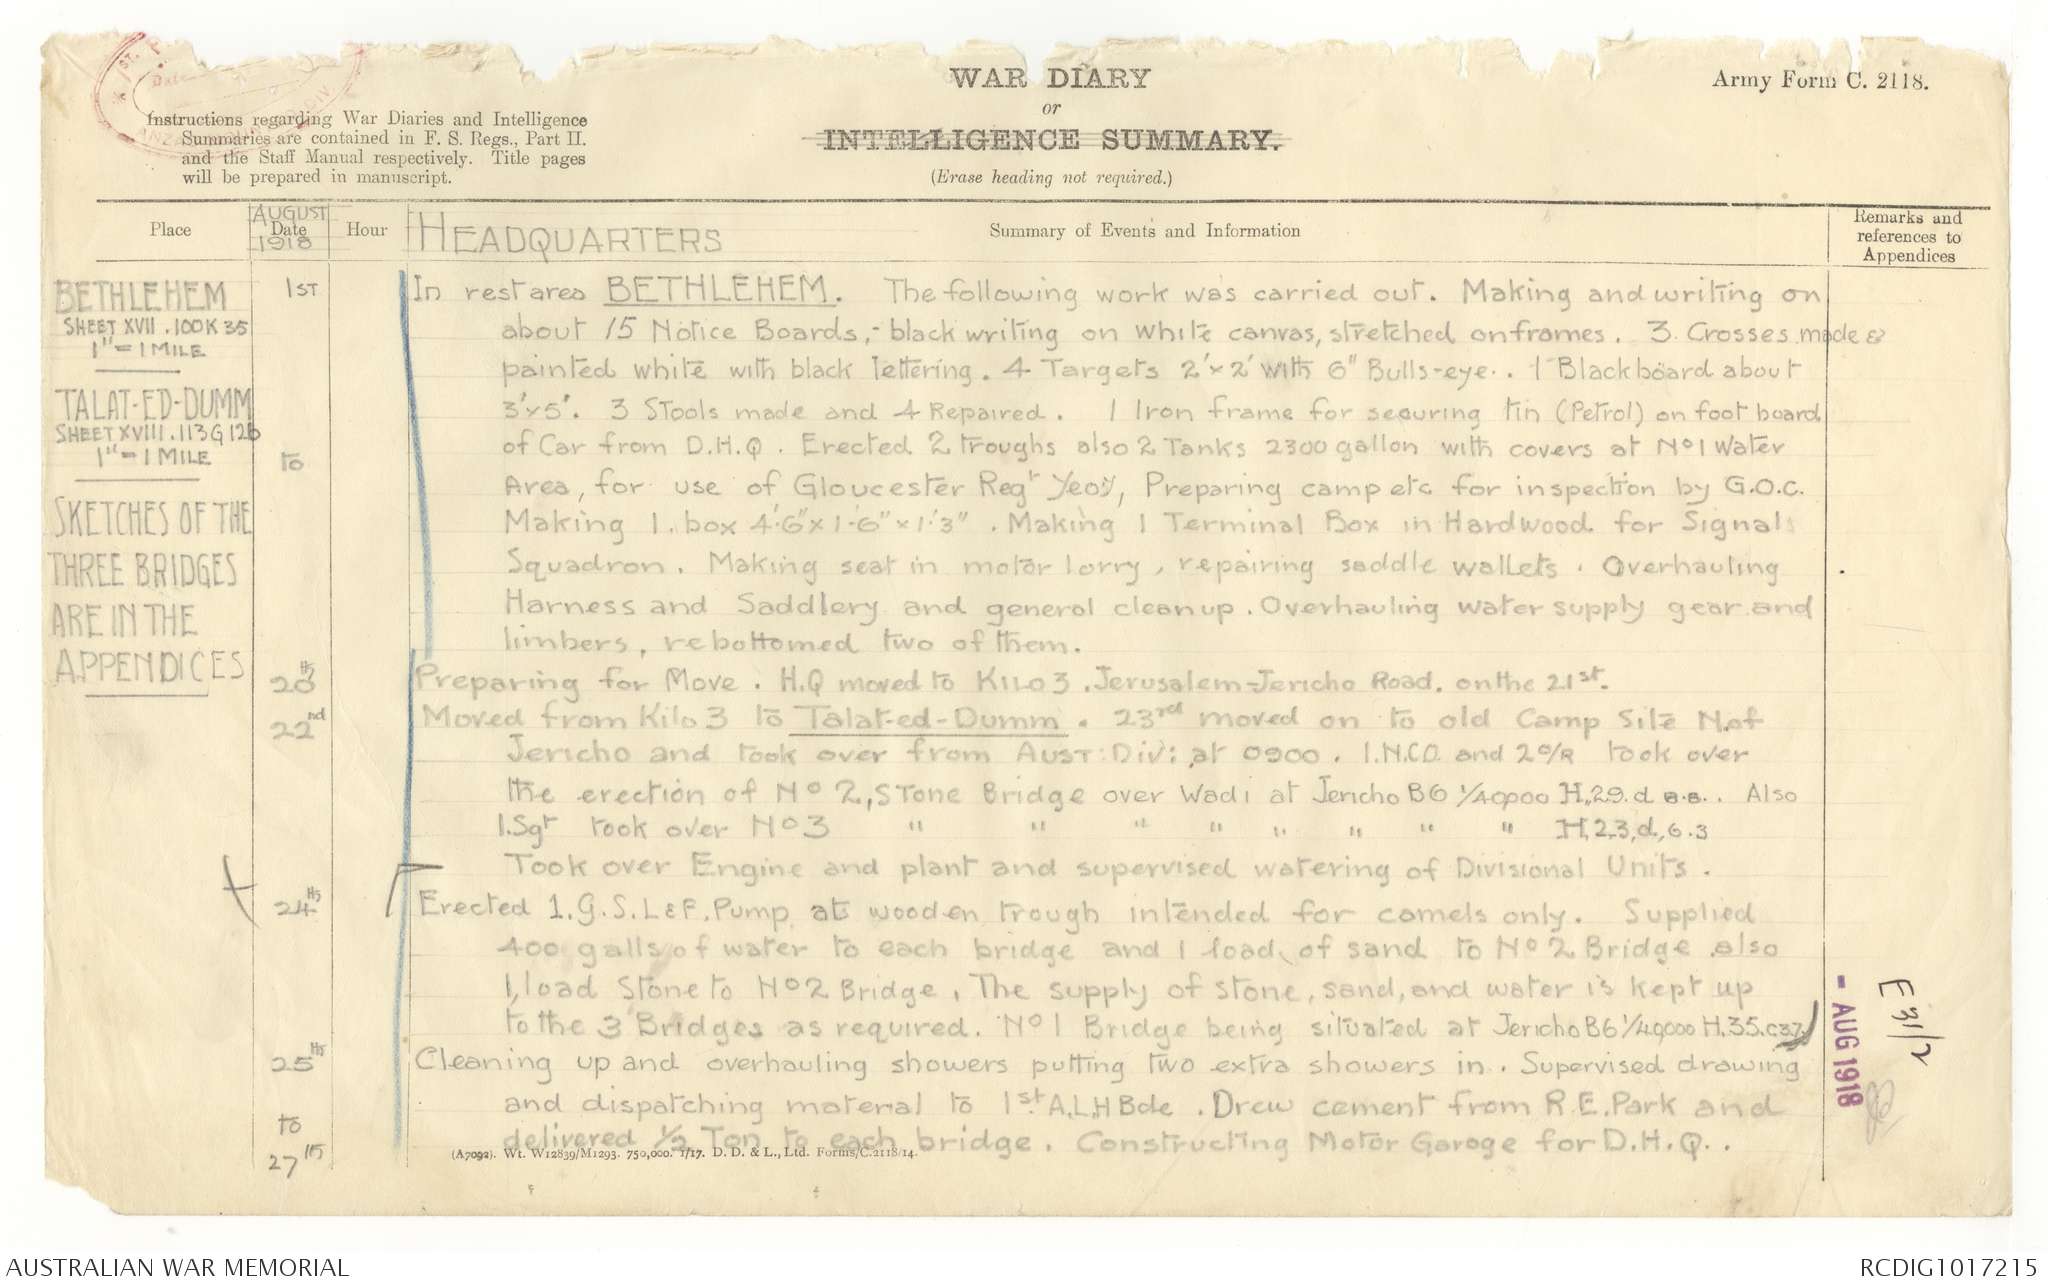 WAR DIARY
or
INTELLIGENCE SUMMARY.
(Erase heading not required.)
Army Form C. 2118.
Instructions regarding War Diaries and Intelligence
Summaries are contained in F. S. Regs., Part II.
and the Staff Manual respectively. Title pages
will be prepared in manuscript.
Place
AUGUST
Date
1918
Hour
HEADQUARTERS
Summary of Events and Information
Remarks and
references to
Appendices
BETHLEHEM
SHEET XVII . 100K 35
1" = 1 MILE
TALAT-ED-DUMM
SHEET XVIII . 113 G 12b
1" = 1 MILE
SKETCHES OF THE
THREE BRIDGES
ARE IN THE
APPENDICES
1ST
to
In rest area BETHLEHEM. The following work was carried out. Making and writing on
about 15 Notice Boards, - black writing on white canvas, stretched on frames. 3 Crosses made &
painted white with black lettering. 4 Targets 2'x2' with 6" Bulls-eye. 1 Blackboard about
3'x5'. 3 Stools made and 4 Repaired. 1 Iron frame for securing tin (Petrol) on foot board
of Car from D.H.Q. Erected 2 troughs also 2 Tanks 2300 gallon with covers at No 1 Water
Area, for use of Gloucester Regt Yeoy, Preparing camp etc for inspection by G.O.C.
Making 1. box 4'.6"x1'.6"x1'.3". Making 1 Terminal Box in Hardwood for Signals
Squadron. Making seat in motor lorry, repairing saddle wallets. Overhauling
Harness and Saddlery and general clean up. Overhauling water supply gear and
limbers, rebottomed two of them.
20th
Preparing for Move. H.Q moved to Kilo 3. Jerusalem-Jericho Road. on the 21st.
22nd
Moved from Kilo 3 to Talat-ed-Dumm. 23rd moved on to old Camp Site N.of
Jericho and took over from Aust: Div: at 0900. 1.N.C.O. and 2 O/R took over
the erection of No 2, Stone Bridge over Wadi at Jericho B6 1/40000 H,29.d Also
1.Sgt took over No 3 " " " " " " " " H,23,d,6.3
Took over Engine and plant and supervised watering of Divisional Units.
24th
Erected 1. G.S. L & F. Pump at wooden trough intended for camels only. Supplied
400 galls of water to each bridge and 1 load, of sand to No 2 Bridge also
1, load Stone to No 2 Bridge. The supply of stone, sand, and water is kept up
to the 3 Bridges as required. No 1 Bridge being situated at Jericho B6 1/40000 H.35.c37
25th
to
27th
Cleaning up and overhauling showers putting two extra showers in. Supervised drawing
and dispatching material to 1st A.L.H Bde. Drew cement from R.E. Park and
delivered 1/2 Ton to each bridge. Constructing Motor Garage for D.H.Q..
E 31/2
- AUG 1918
(A7092). Wt. W12839/M1293. 750,000. 1/17. D. D. & L., Ltd. Forms/C.2118/14.
AUSTRALIAN WAR MEMORIAL
RCDIG1017215